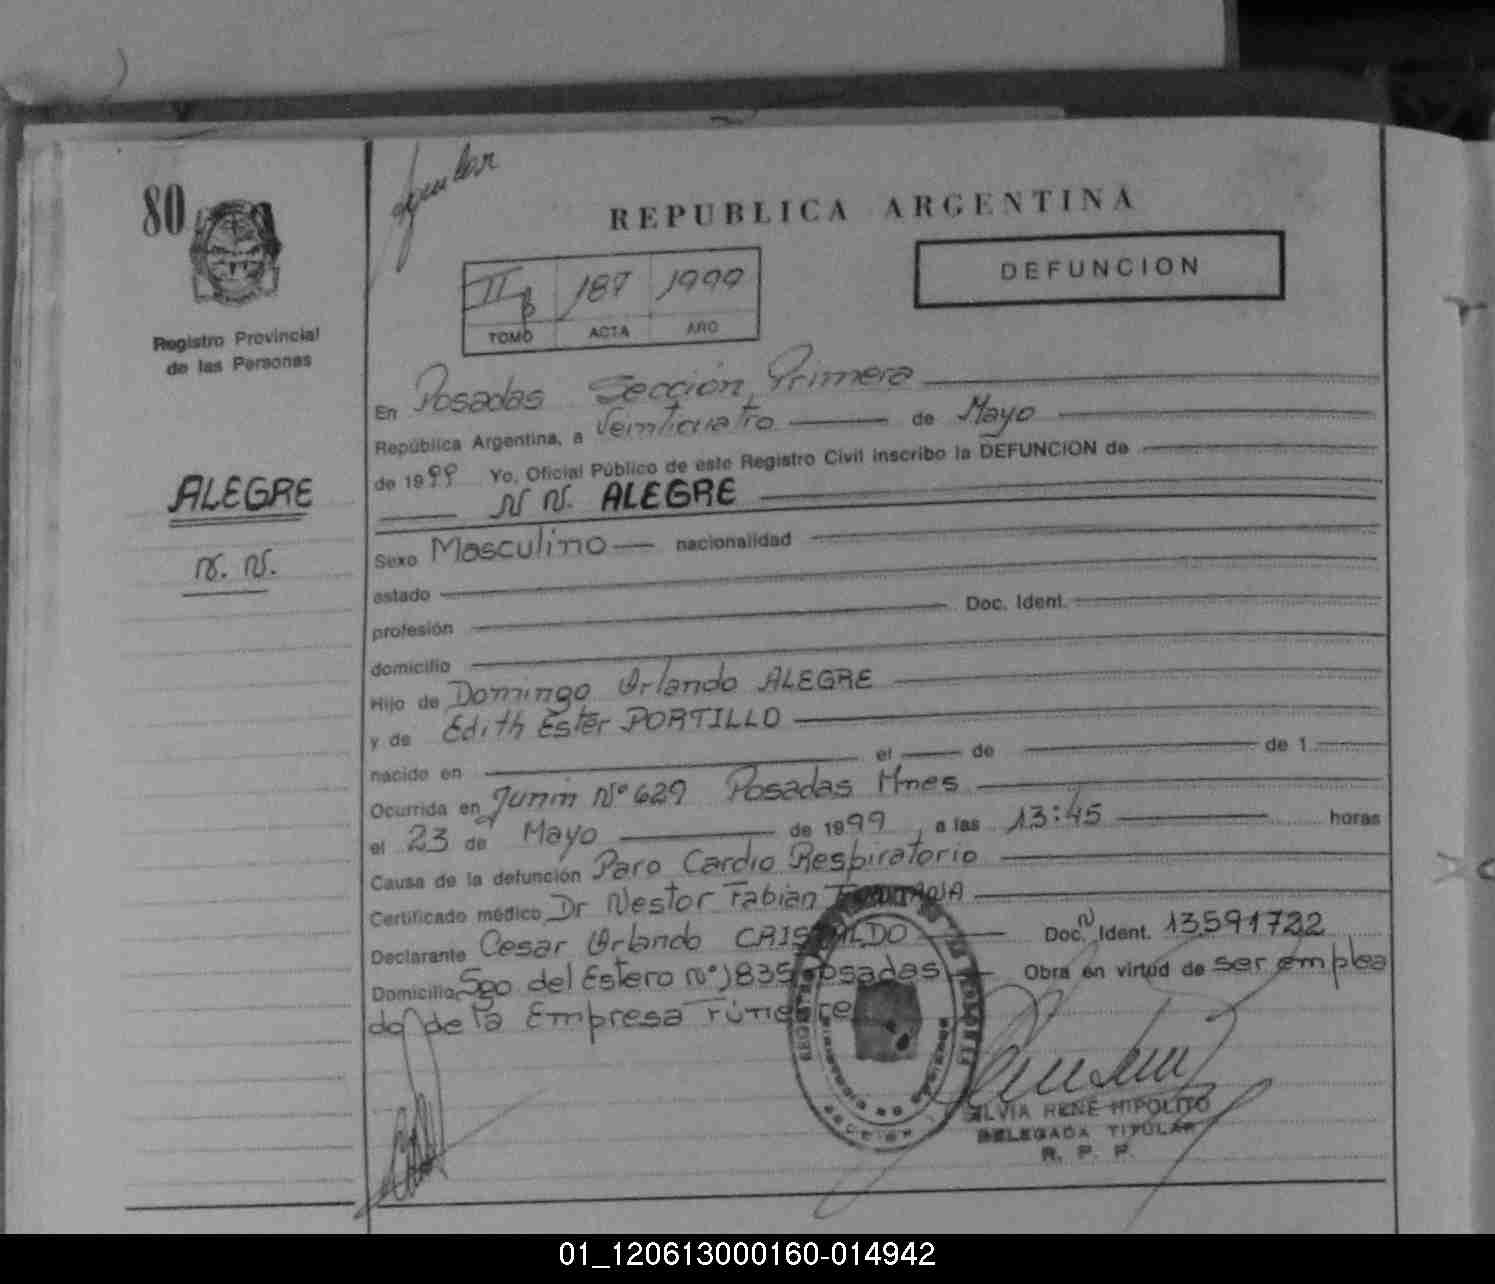 80
REPUBLICA ARGENTINA
DEFUNCION
II 187 1999
TOMO ACTA AÑO
Registro Provincial
de las Personas
ALEGRE
N. N.
En Posadas Sección Primera
República Argentina, a Veinticuatro de Mayo
de 1999 Yo, Oficial Público de este Registro Civil inscribo la DEFUNCION de
N N. ALEGRE
Sexo Masculino nacionalidad
estado
profesión Doc. Ident.
domicilio
Hijo de Domingo Orlando ALEGRE
y de Edith Ester PORTILLO
nacido en el de de 1
Ocurrida en Junin Nº 629 Posadas Mnes
el 23 de Mayo de 1999, a las 13:45 horas
Causa de la defunción Paro Cardio Respiratorio
Certificado médico Dr Nestor Fabian
Declarante Cesar Orlando CRISTALDO Doc. N Ident. 13591722
Domicilio Sgo del Estero Nº 1835 Posadas Obra en virtud de ser emplea
do de la Empresa
SILVIA RENE HIPOLITO
DELEGADA TITULAR
R. P. P.
01_120613000160-014942